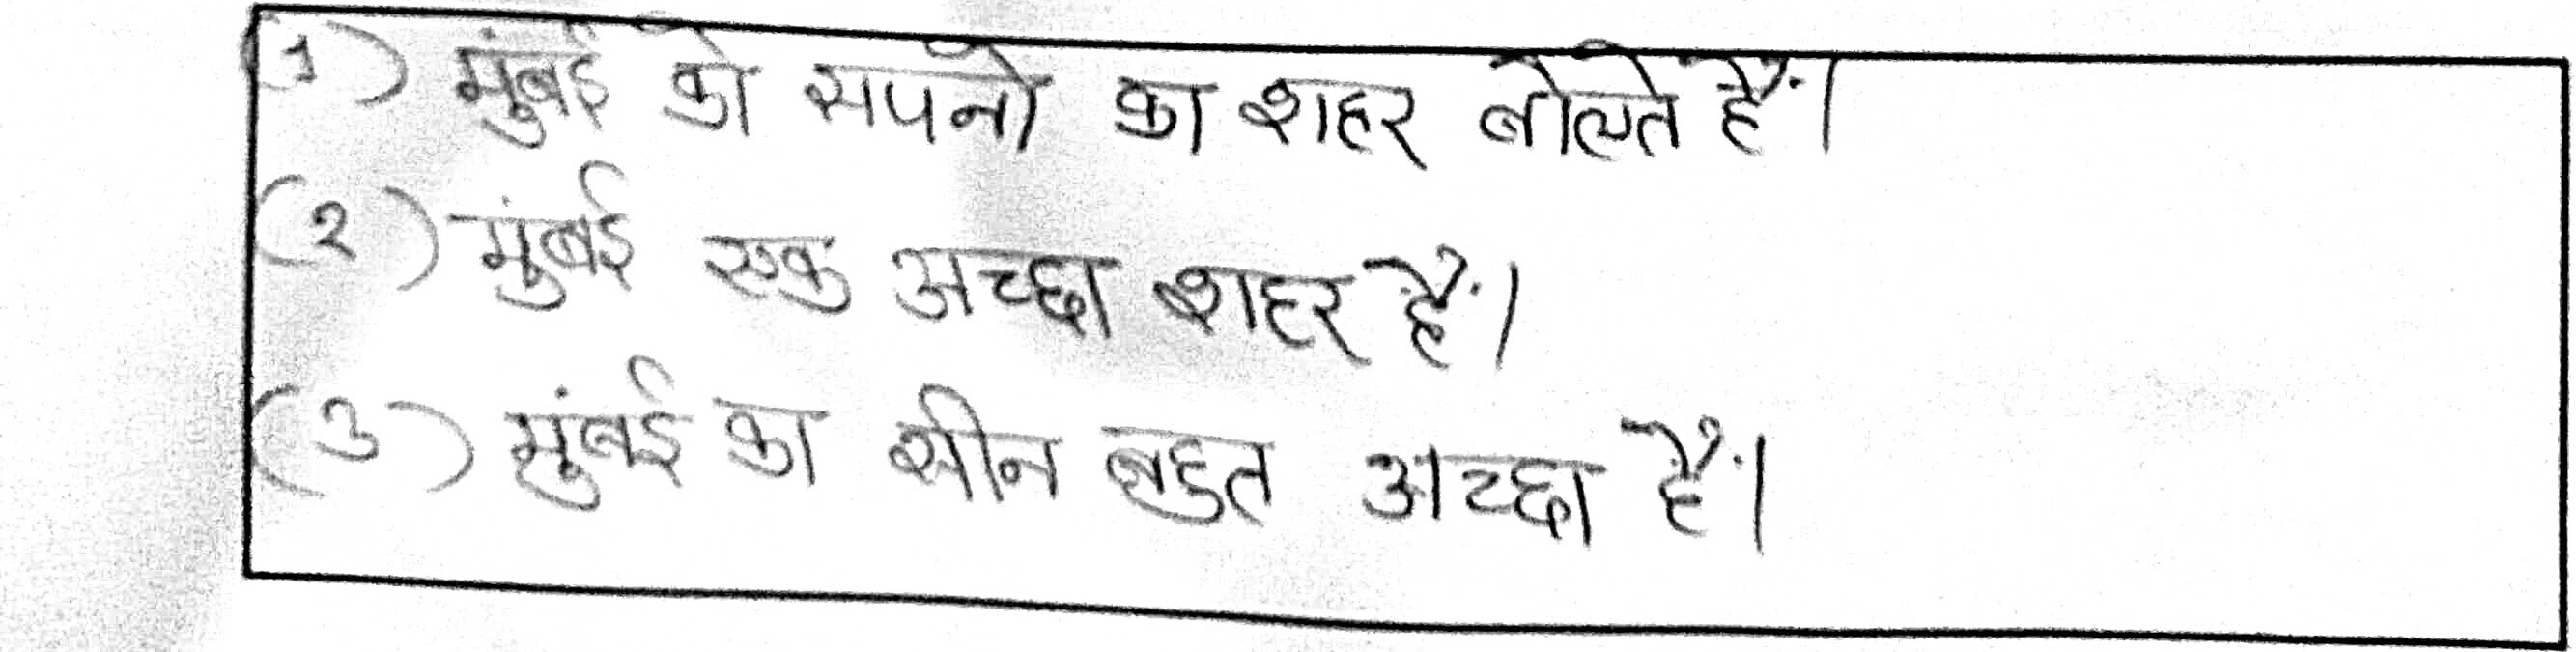 (1) मुंबई को सपनो का शहर बोलते हैं।
(2) मुंबई एक अच्छा शहर हैं।
(3) मुंबई का सीन बहुत अच्छा हैं।